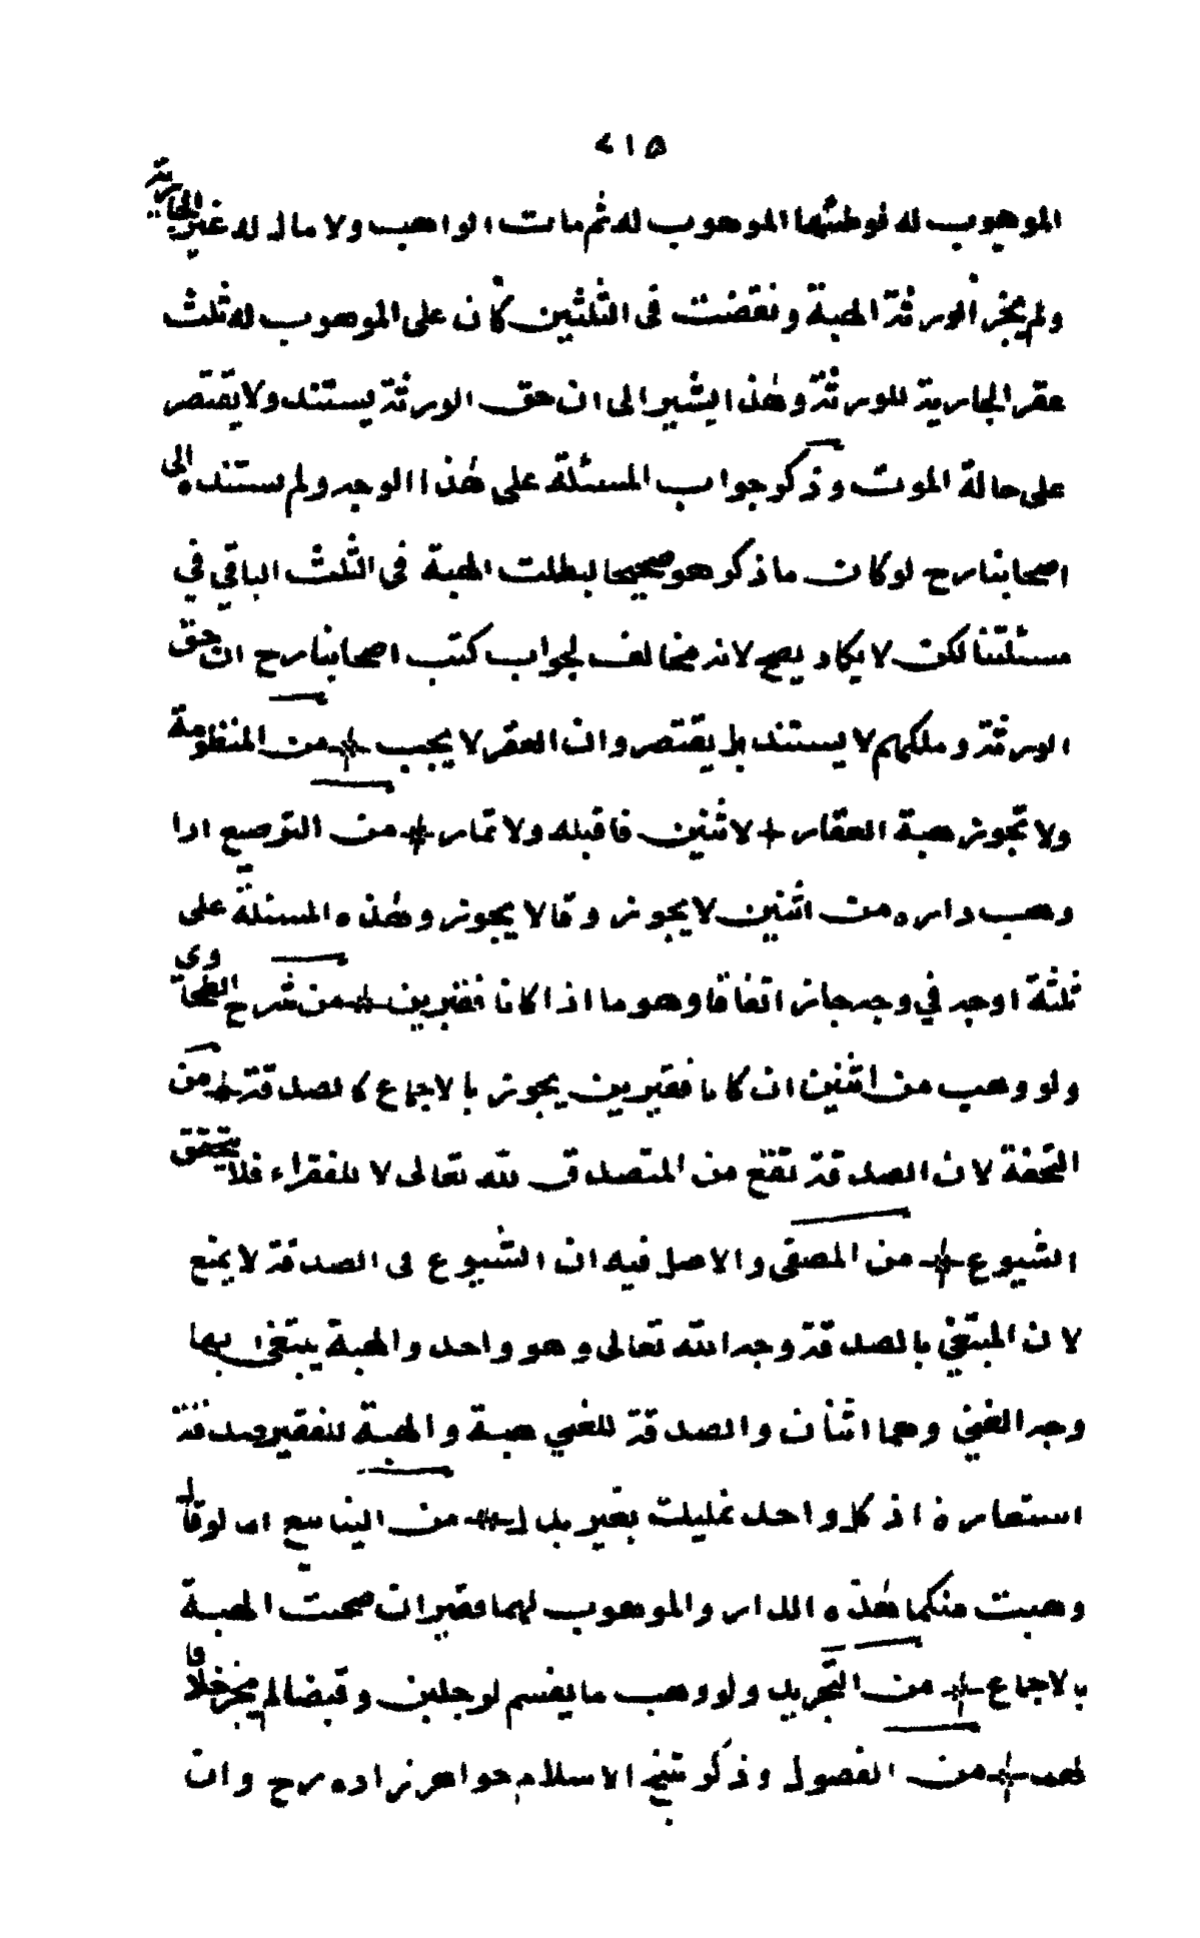 ٧١٥
الموهوب له فوطئها الموهوب له ثم مات الواهب ولا مال له غير الجارية
ولم يجز الورثة الهبة ونقضت فى الثلثين كان على الموهوب له ثلث
عقر الجارية للورثة وهذا يشير الى ان حق الورثة يستند ولا يقتصر
على حالة الموت وذكر جواب المسئلة على هذا الوجه ولم يستنده الى
اصحابنا رح لو كان ما ذكر هو صحيحا لبطلت الهبة فى الثلث الباقي في
مسئلتنا لكن لا يكاد يصح لانه مخالف لجواب كتب اصحابنا رح ان حق
الورثة وملكهم لا يستند بل يقتصر وان العقر لا يجب + من المنظومة
ولا تجوز هبة العقار + لاثنين فاقبله ولا تمار + من التوصيع اذا
وهب داره من اثنين لا يجوز وقالا يجوز وهذه المسئلة على
ثلثة اوجه في وجه جاز اتفاقا وهو ما اذا كانا فقيرين + من شرح الطحاوى
ولو وهب من اثنين ان كانا فقيرين يجوز بالاجماع كالصدقة + من
التحفة لان الصدقة تقع من المتصدق لله تعالى لا للفقراء فلا يتحقق
الشيوع + من المصفى والاصل فيه ان الشيوع فى الصدقة لا يمنع
لان المبتغي بالصدقة وجه الله تعالى وهو واحد والهبة يبتغى بها
وجه الغني وهما اثنان والصدقة للغني هبة والهبة للفقير صدقة
استعارة اذ كل واحد تمليك بغير بدل + من الينابيع اما لو قال
وهبت منكما هذه الدار والموهوب لهما فقيران صحت الهبة
بالاجماع + من التجريد ولو وهب ما يقسم لرجلين وقبضا لم يجز خلافا
لهما + من الفصول وذكر شيخ الاسلام خواهر زاده رح وان